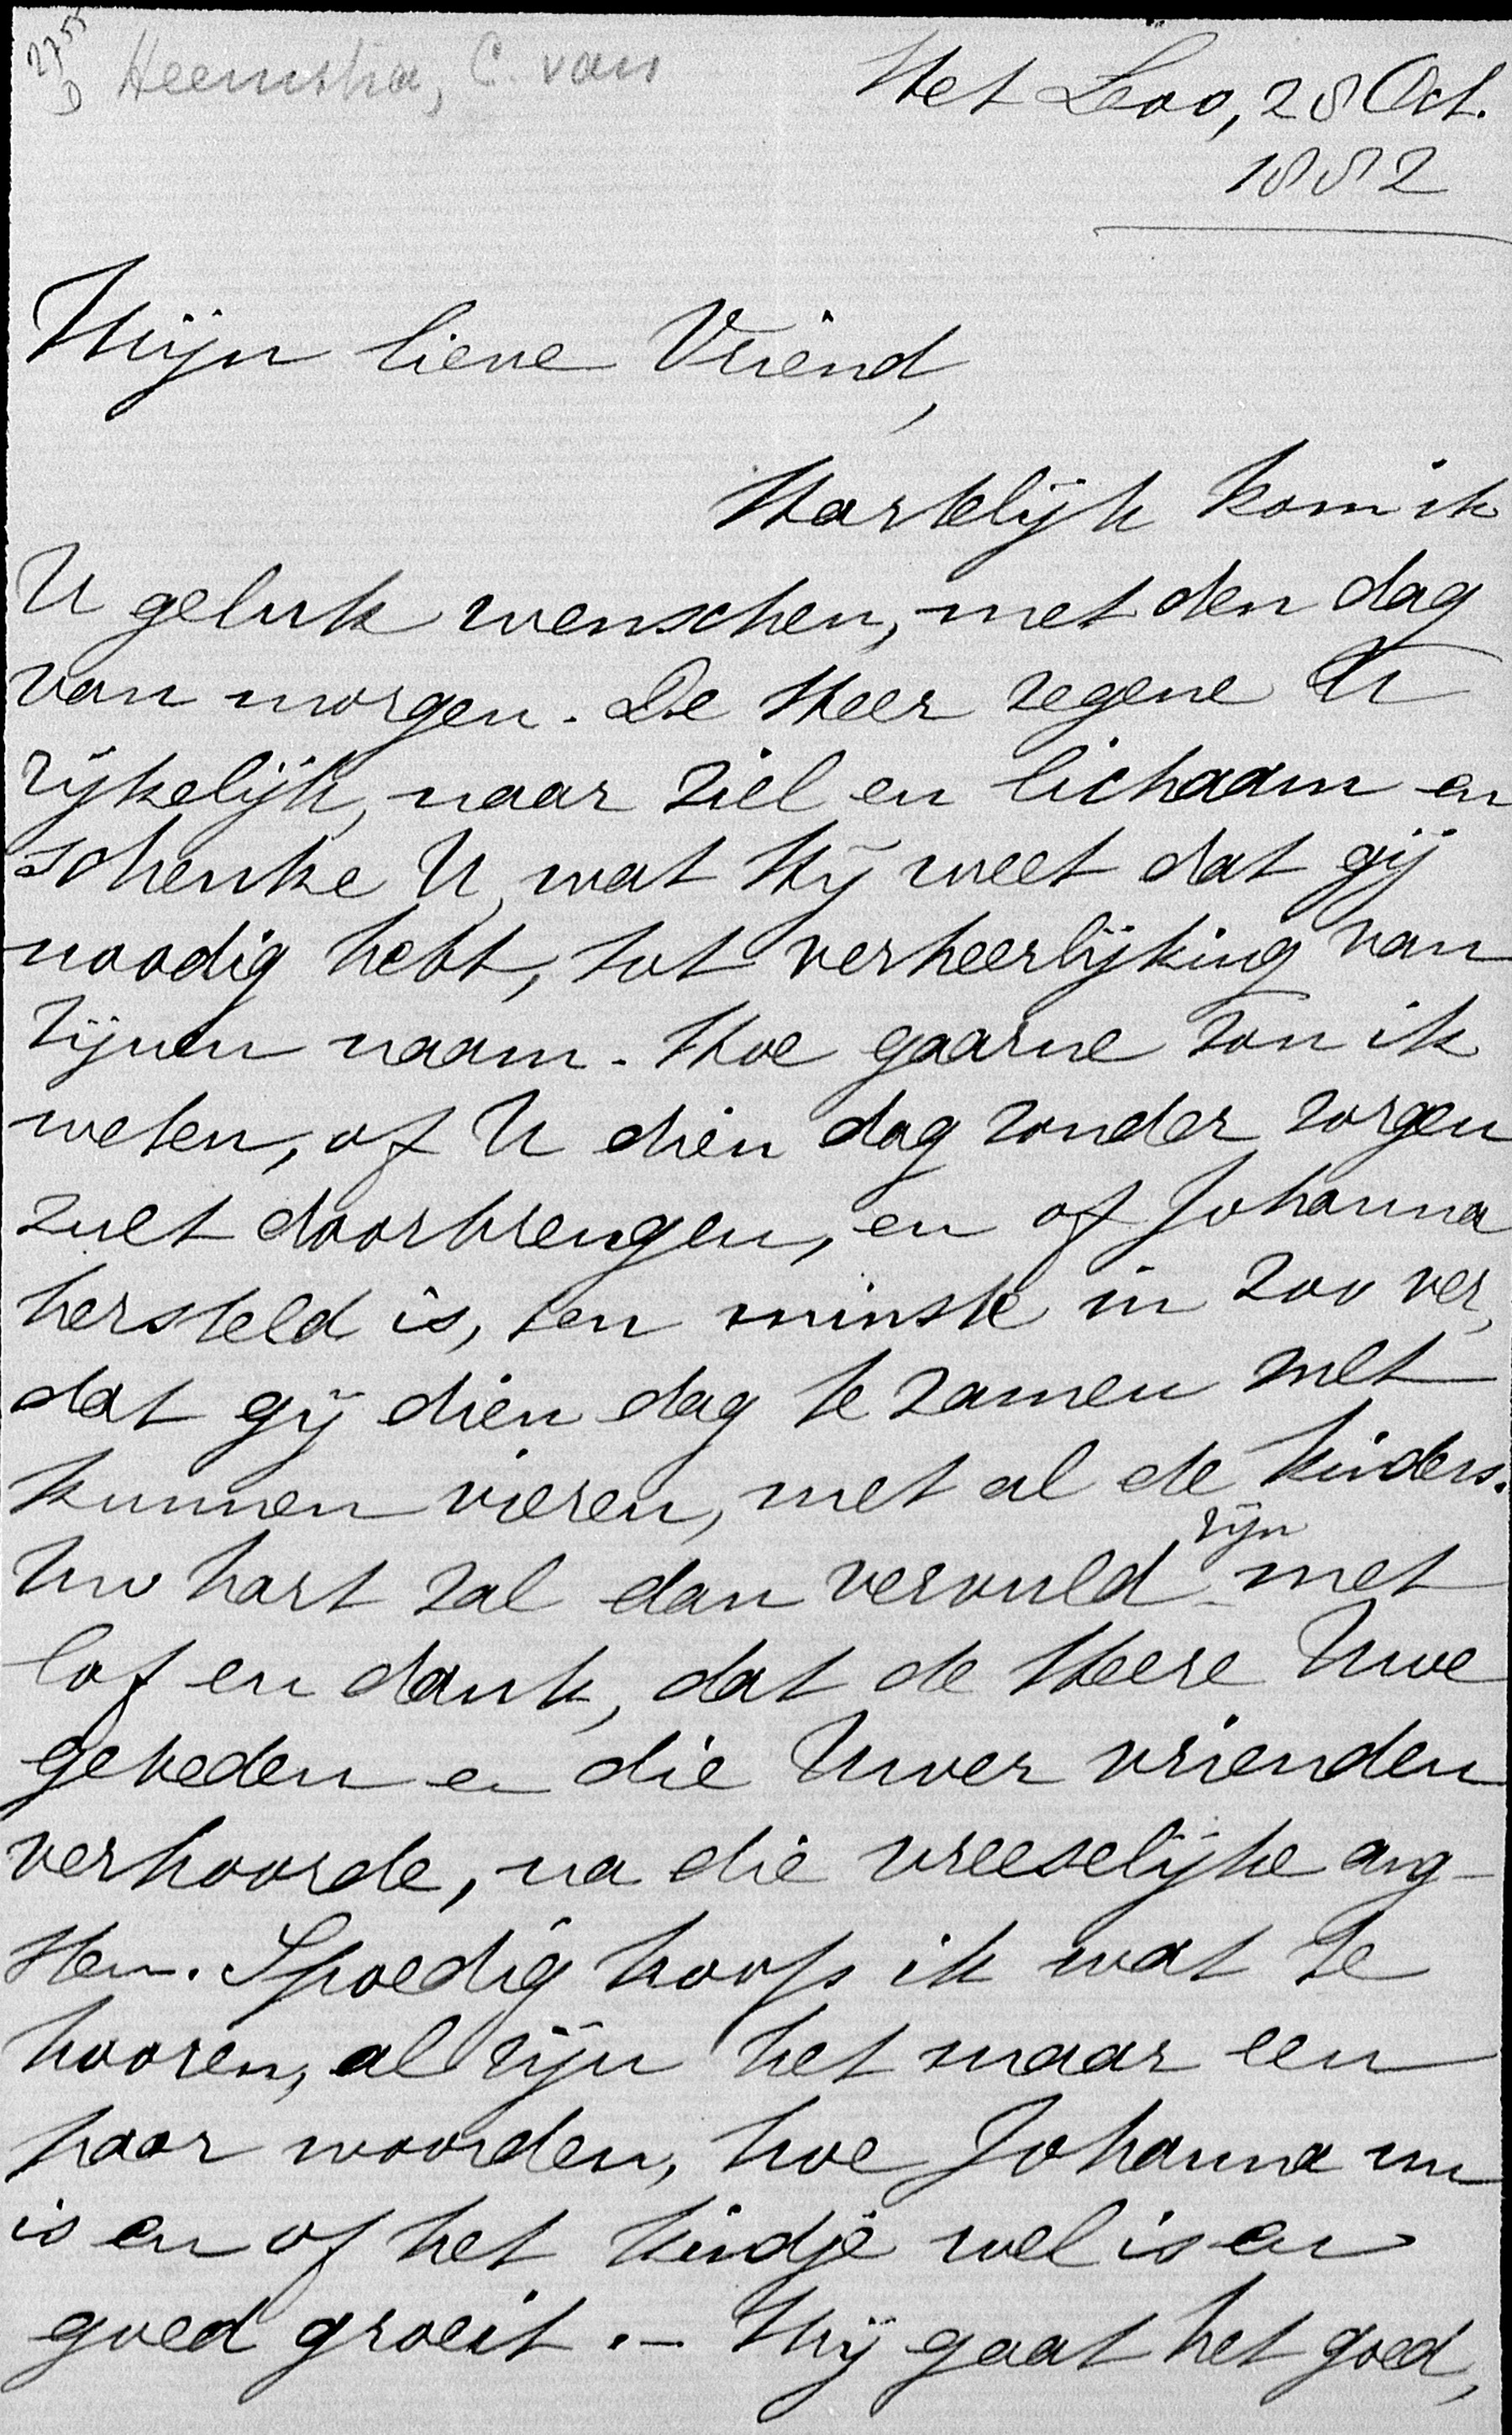 2755
D Heemstra, C. van
Het Loo, 28 Oct.
1882
Mijn lieve Vriend,
Hartelijk kom ik
U geluk wenschen, met den dag
van morgen. De Heer zegene U
rijkelijk, naar ziel en lichaam en
schenke U, wat Hij weet dat gij
noodig hebt, tot verheerlijking van
zijnen naam. Hoe gaarne zou ik
weten, of U dien dag zonder zorgen
zult doorbrengen, en of Johanna
hersteld is, ten minste in zoo ver,
dat gij dien dag te zamen zult
kunnen vieren, met al de kinders.
zijn
Uw hart zal dan vervuld met
lof en dank, dat de Heere Uwe
gebeden en die Uwer vrienden
verhoorde, na die vreeselijke ang-
sten. Spoedig hoop ik wat te
hooren, al zijn het maar een
paar woorden, hoe Johanna nu
is en of het kindje wel is en
goed groeit. - Mij gaat het goed,